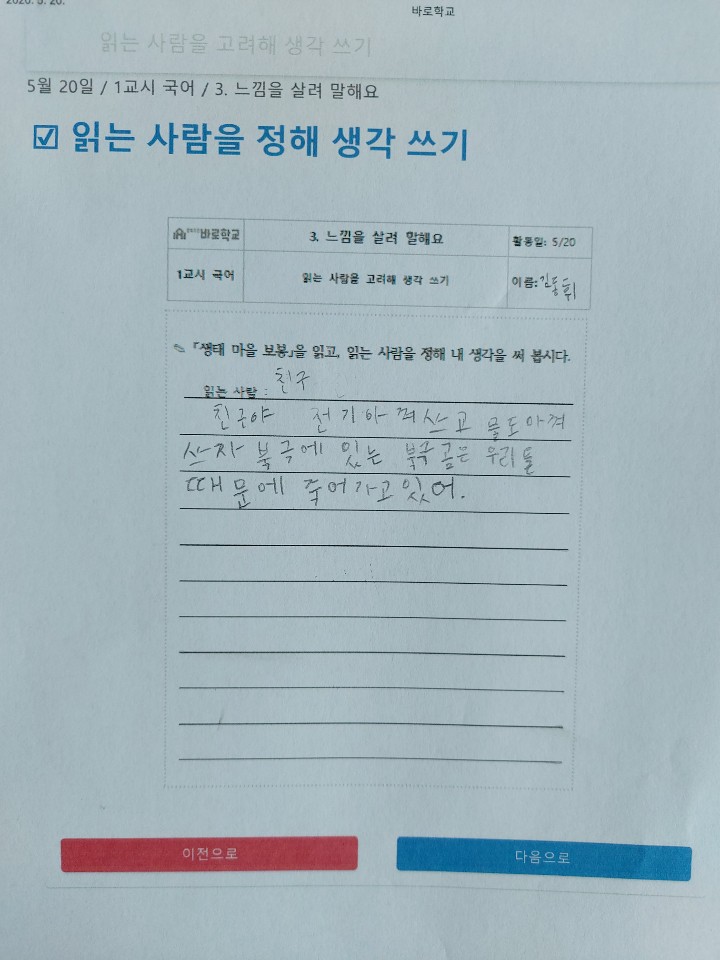 2020. 5. 20.
바로학교
읽는 사람을 고려해 생각 쓰기
5월 20일 / 1교시 국어 / 3. 느낌을 살려 말해요
☑ 읽는 사람을 정해 생각 쓰기
바로학교 3. 느낌을 살려 말해요 활동일: 5/20
1교시 국어 읽는 사람을 고려해 생각 쓰기 이름: 김동휘
✎ 「생태 마을 보봉」을 읽고, 읽는 사람을 정해 내 생각을 써 봅시다.
읽는 사람 : 친구
친구야 전기아껴쓰고 물도아껴
쓰자 북극에 있는 북극곰은 우리들
때문에 죽어가고있어.
이전으로
다음으로